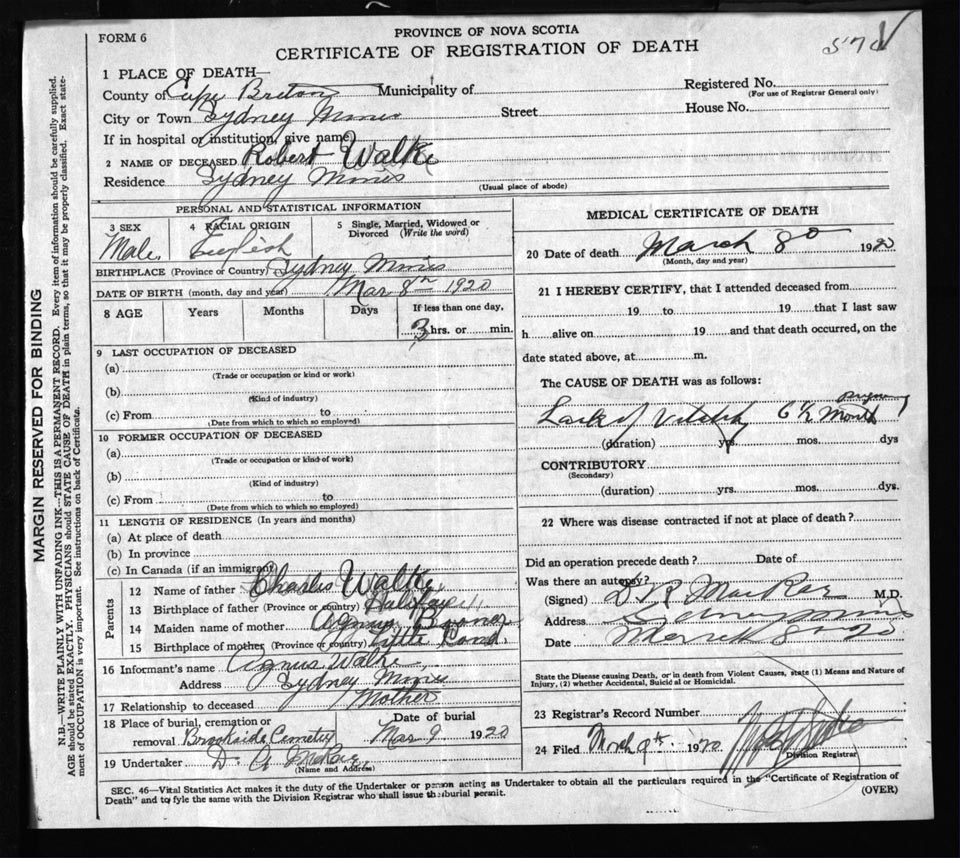 FORM 6
PROVINCE OF NOVA SCOTIA
CERTIFICATE OF REGISTRATION OF DEATH
1 PLACE OF DEATH—
County of Cape Breton Municipality of Registered No.
(For use of Registrar General only)
City or Town Sydney Mines Street House No.
If in hospital or institution, give name
2 NAME OF DECEASED Robert Walke
Residence Sydney Mines
(Usual place of abode)
PERSONAL AND STATISTICAL INFORMATION
3 SEX 4 RACIAL ORIGIN 5 Single, Married, Widowed or Divorced (Write the word)
Male English
BIRTHPLACE (Province or Country) Sydney Mines
DATE OF BIRTH (month, day and year) Mar 8th 1920
8 AGE Years Months Days If less than one day,
3 hrs. or min.
9 LAST OCCUPATION OF DECEASED
(a)
(Trade or occupation or kind or work)
(b)
(Kind of industry)
(c) From to
(Date from which to which so employed)
10 FORMER OCCUPATION OF DECEASED
(a)
(Trade or occupation or kind of work)
(b)
(Kind of industry)
(c) From to
(Date from which to which so employed)
11 LENGTH OF RESIDENCE (In years and months)
(a) At place of death
(b) In province
(c) In Canada (if an immigrant)
Parents
12 Name of father Charles Walke
13 Birthplace of father (Province or country) Halifax
14 Maiden name of mother Agnus
15 Birthplace of mother (Province or country) Little Pond
16 Informant's name Agnus Walke
Address Sydney Mines
17 Relationship to deceased Mother
18 Place of burial, cremation or removal Brookside Cemetery
Date of burial Mar 9 1920
19 Undertaker D. A. McRae
(Name and Address)
MEDICAL CERTIFICATE OF DEATH
20 Date of death March 8 1920
(Month, day and year)
21 I HEREBY CERTIFY, that I attended deceased from
19 to 19 that I last saw
h alive on 19 and that death occurred, on the
date stated above, at m.
The CAUSE OF DEATH was as follows:
Lack of Vitality 6 1/2 Month
(duration) yrs. mos. dys
CONTRIBUTORY
(Secondary)
(duration) yrs. mos. dys.
22 Where was disease contracted if not at place of death?
Did an operation precede death? Date of
Was there an autopsy?
(Signed) D R MacRae M.D.
Address Sydney Mines
Date March 8 20
State the Disease causing Death, or in death from Violent Causes, state (1) Means and Nature of
Injury, (2) whether Accidental, Suicidal or Homicidal.
23 Registrar's Record Number
24 Filed March 9th 1920
Division Registrar
SEC. 46—Vital Statistics Act makes it the duty of the Undertaker or person acting as Undertaker to obtain all the particulars required in the "Certificate of Registration of
Death" and to fyle the same with the Division Registrar who shall issue the burial permit.
(OVER)
MARGIN RESERVED FOR BINDING
N.B.—WRITE PLAINLY WITH UNFADING INK—THIS IS A PERMANENT RECORD. Every item of information should be carefully supplied.
AGE should be stated EXACTLY. PHYSICIANS should STATE CAUSE OF DEATH in plain terms, so that it may be properly classified. Exact state-
ment of OCCUPATION is very important. See instructions on back of Certificate.